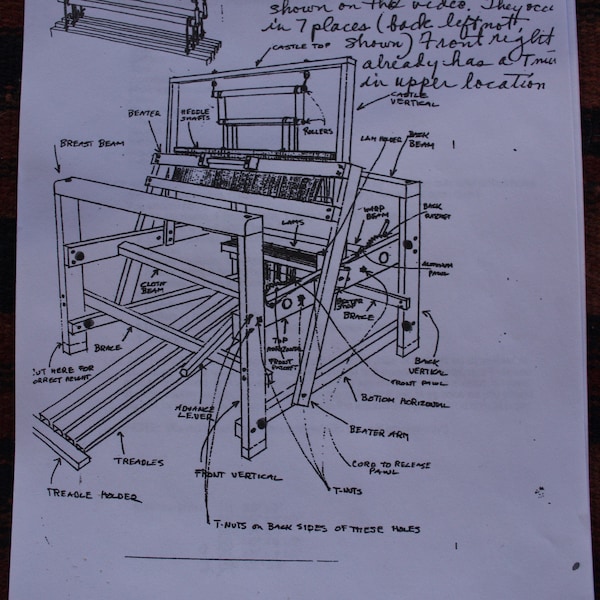 shown on the video. They occ
in 7 places (back left not
shown) Front right
already has a T-nu
in upper location
CASTLE TOP
CASTLE
VERTICAL
BEATER
HEDDLE
SHAFTS
ROLLERS
LAM HOLDER
BACK
BEAM
BREAST BEAM
WARP
BEAM
BACK
LAMS
PAWL
CLOTH
BEAM
BEATER
STOP
BRACE
TOP
HORIZONTAL
CUT HERE FOR
CORRECT HEIGHT
BRACE
FRONT
BACK
VERTICAL
FRONT PAWL
ADVANCE
LEVER
BOTTOM HORIZONTAL
BEATER ARM
TREADLES
FRONT VERTICAL
CORD TO RELEASE
PAWL
TREADLE HOLDER
T-NUTS
T-NUTS ON BACK SIDES OF THESE HOLES